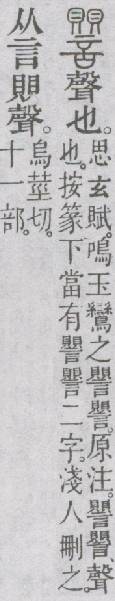 譻聲也。思玄賦。鳴玉鸞之譻譻。原注。譻譻、聲
也。按篆下當有譻譻二字。淺人刪之。
从言賏聲。烏莖切。
十一部。